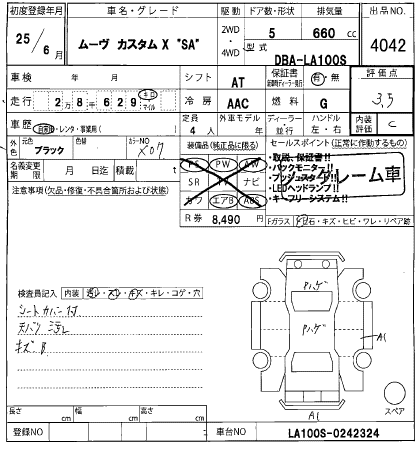 初度登録年月
車名・グレード
駆動
ドア数・形状
排気量
出品NO.
25/6月
ムーヴ カスタム X "SA"
2WD・4WD
5
660 cc
4042
型式
DBA-LA100S
車検 年 月
シフト
AT
保証書
有・無
評価点
3.5
走行
2万8千629
キロ
マイル
冷房
AAC
燃料
G
車歴
自家用・レンタ・事業用( )
定員
4人
外車モデル
年
ディーラー
並行
ハンドル
左・右
内装
評価
C
外色
元色
ブラック
色替
カラーNO
X07
装備品(純正品に限る)
セールスポイント(正常に作動するもの)
名義変更
期限
月 日迄
積載 t
PS PW AW
SR TV ナビ
カワ エアB ABS
・取説、保証書!!
・バックモニター!!
・プッシュスタート!!
・LEDヘッドランプ!!
・キーフリーシステム!!
レーム車
注意事項(欠品・修復・不具合箇所および状態)
R券 8,490 円
Fガラス 飛石・キズ・ヒビ・ワレ・リペア跡
検査員記入
内装
汚レ・スレ・キズ・キレ・コゲ・穴
シートカバー付
天バリ 汚レ
キズ B
Pハゲ
Pハゲ
A1
A1
スペア
長さ cm
幅 cm
高さ cm
登録NO
車台NO
LA100S-0242324